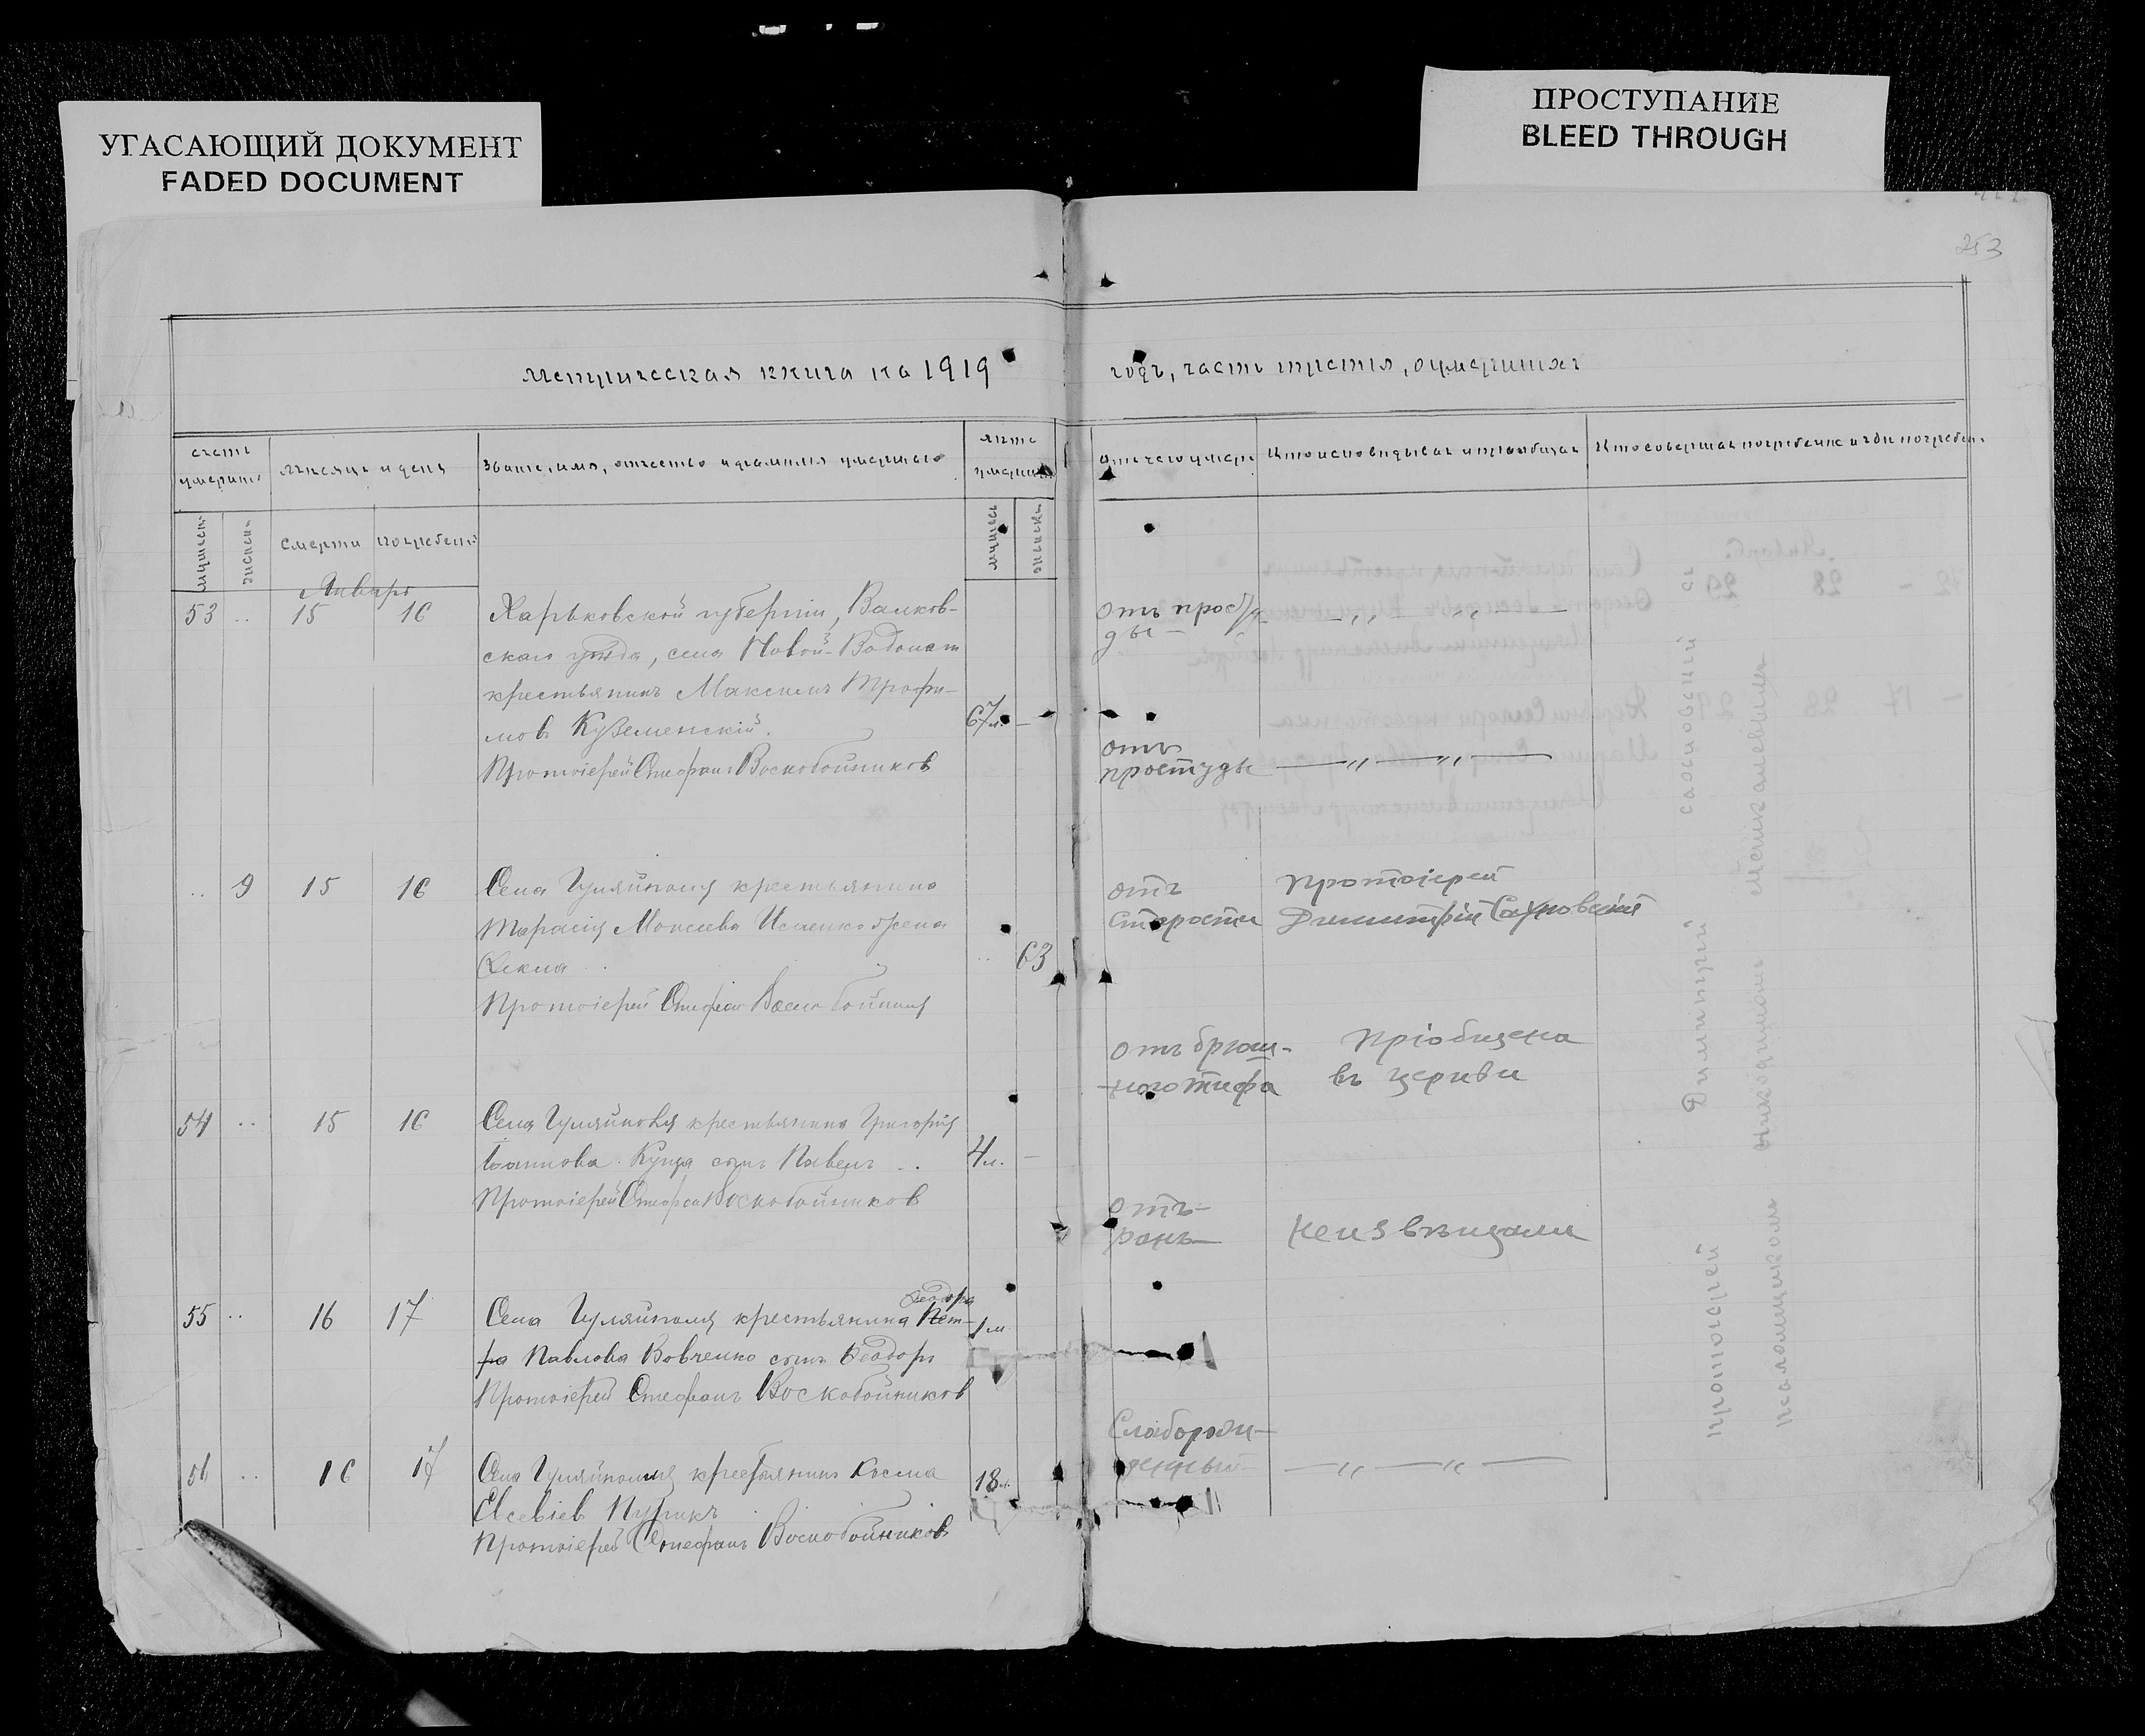 УГАСАЮЩИЙ ДОКУМЕНТ
FADED DOCUMENT
ПРОСТУПАНИЕ
BLEED THROUGH
253
Метрическая книга на 1919
годъ, часть третья, о умершихъ
счетъ
умерших
мѣсяцъ и день
Званіе, имя, отчество и фамилія умершаго
лѣта
умершаго
отъ чего умеръ
Кто исповѣдывалъ и пріобщалъ
Кто совершал погребеніе и гдѣ погребен.
мужеск
женски
смерти
погребенія
мужеск
женски
Январь
53 .. 15 16
Харьковской губерніи, Валков-
скаго уѣзда, села Новой-Водолаги
крестьянинъ Максимъ Трофи-
мов Куземенскій.
Протоіерей Стефанъ Воскобойников
67 л. –
отъ просту
ды –
отъ
простуды
.. 9 15 16
Села Гуляйполя крестьянина
Тарасія Моисеева жена
Ѳекла
Протоіерей Стефан Воскобойников
.. 63
отъ
старости
Протоіерей
Димитрій Сахновскій
54 .. 15 16
Села Гуляйполя крестьянина Григорія
Куща сынъ Павелъ ..
Протоіерей Стефан Воскобойников
4 л. –
отъ брюш-
ного тифа
пріобщена
въ церкви
отъ
ранъ
неизвѣщали
55 .. 16 17
Ѳеодора
Села Гуляйполя крестьянина Пет-
ра Павлова Вовченко сынъ Ѳеодоръ
Протоіерей Стефанъ Воскобойников
1 м
56 .. 16 17
Села Гуляйполя крестьянинъ Косма
Евсевіев
Протоіерей Стефанъ Воскобойников
18 л.
Слаборож-
денный
протоіерей Димитрій Сахновскій съ
псаломщикомъ